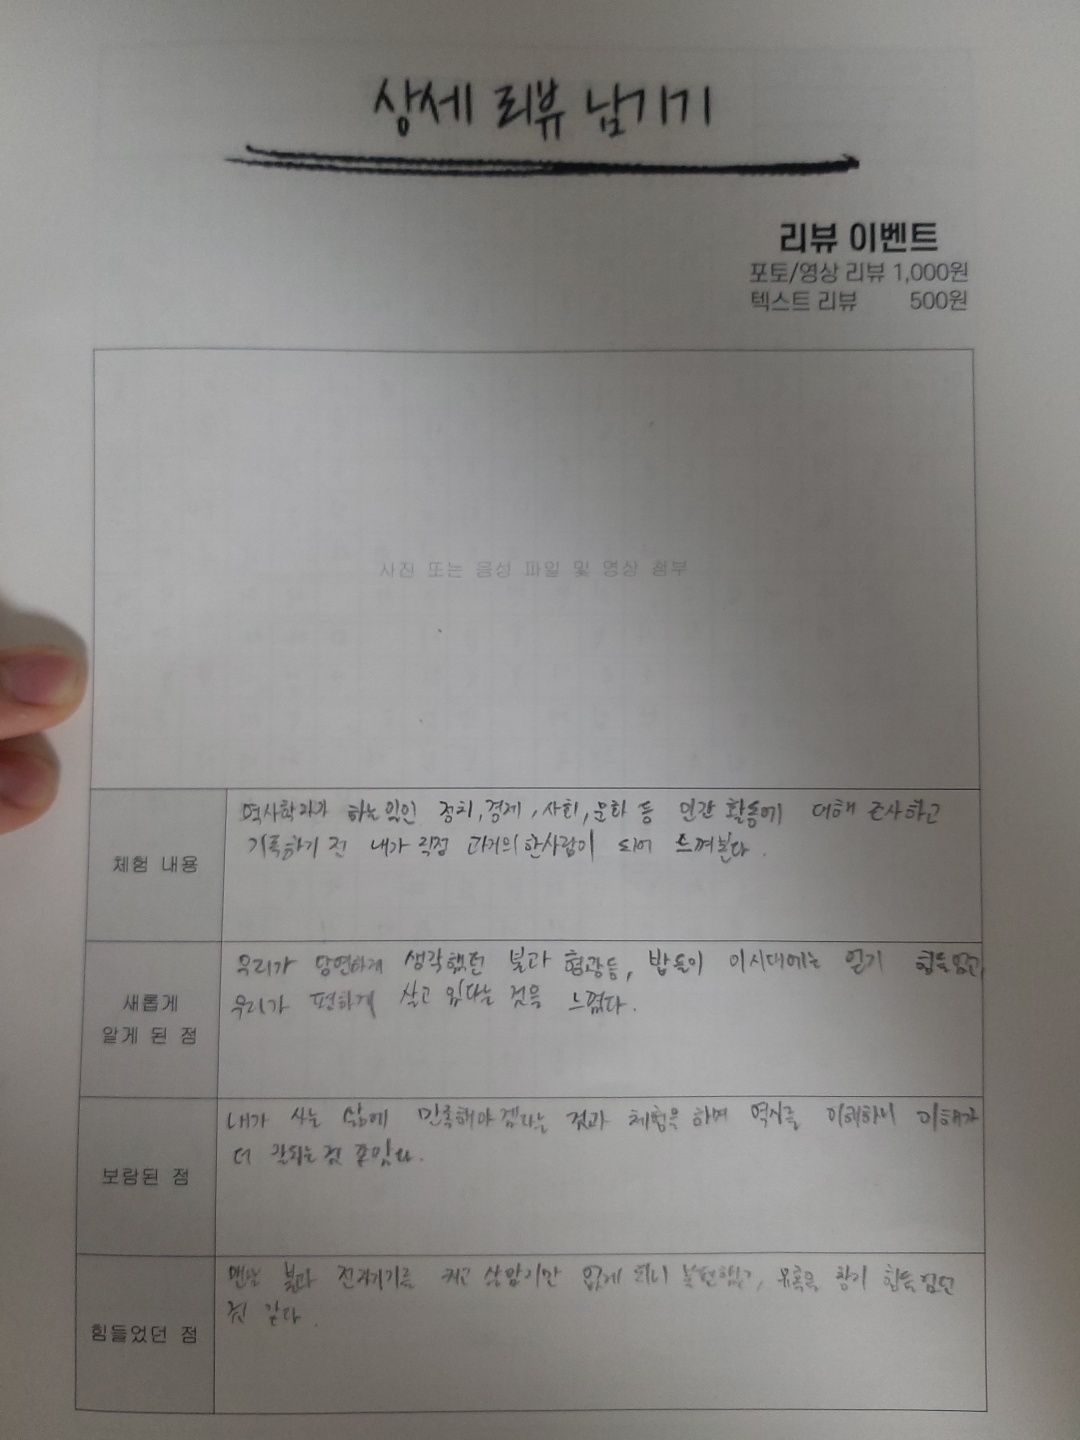 상세 리뷰 남기기
리뷰 이벤트
포토/영상 리뷰 1,000원
텍스트 리뷰 500원
사진 또는 음성 파일 및 영상 첨부
체험 내용
역사학자가 하는 일인 정치,경제,사회,문화 등 인간 활동에 대해 조사하고
기록하기 전 내가 직접 과거의 한사람이 되어 느껴본다.
새롭게
알게 된 점
우리가 당연하게 생각했던 불과 형광등, 밥들이 이시대에는 얻기 힘들었고
우리가 편하게 살고 있다는 점을 느꼈다.
보람된 점
내가 사는 삶에 만족해야겠다는 것과 체험을 하며 역사를 이해하니 이해가
더 잘되는것 같았다.
힘들었던 점
맨날 불과 전자기기를 켜고 살았지만 없게 되니 불편했고, 유혹을 참기 힘들었던
것 같다.